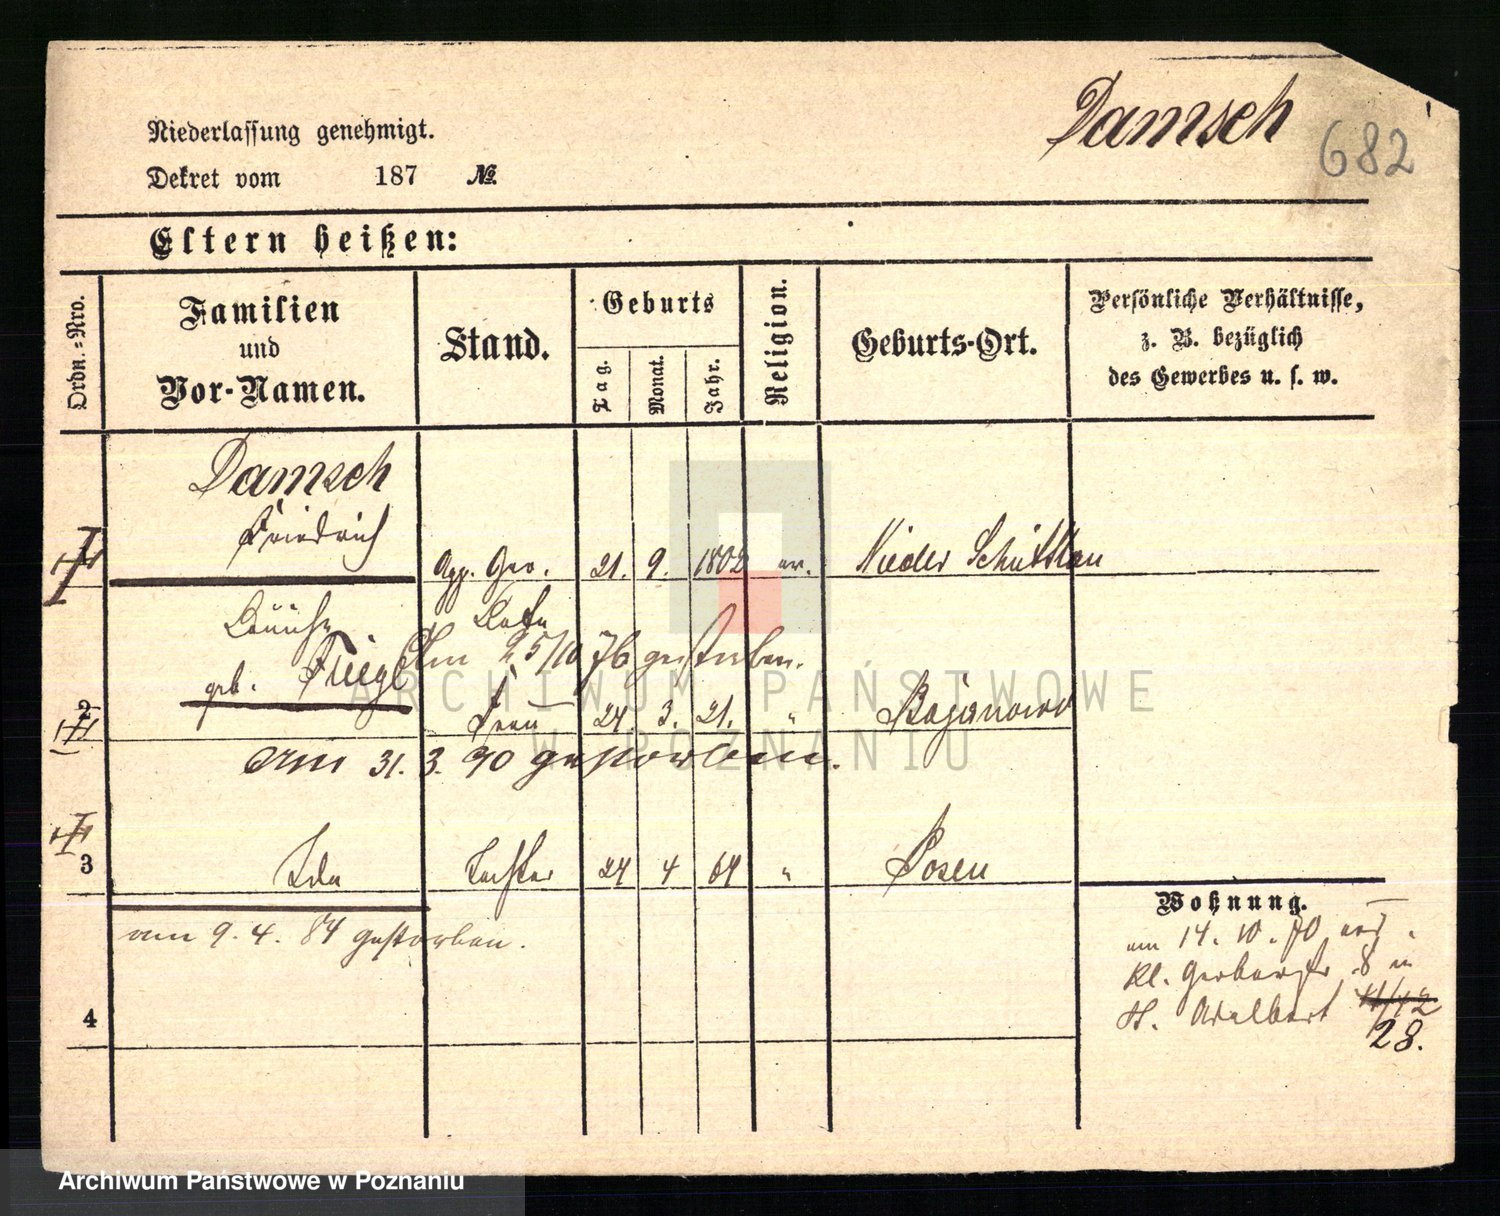 Damsch
682
Niederlassung genehmigt.
Dekret vom 187 №.
Eltern heißen:
Ordn.-Nro.
Familien und Vor-Namen.
Stand.
Geburts
Tag.
Monat.
Jahr.
Religion.
Geburts-Ort.
Persönliche Verhältnisse, z. B. bezüglich des Gewerbes u. s. w.
Damsch
Friedrich
App. Ger. 21. 9. 1802 ev. Nieder Schüttlau
Am 25/10 76 gestorben.
geb.
2 Frau 24. 3. 21. " Bojanowo
am 31. 3. 90 gestorben.
3 Ida Tochter 24 4 64 " Posen
am 9. 4. 84 gestorben.
4
Wohnung.
am 14. 10. 70
kl. Gerberstr. 8 in
St. Adalbert
28.
ARCHIWUM PAŃSTWOWE
W POZNANIU
Archiwum Państwowe w Poznaniu